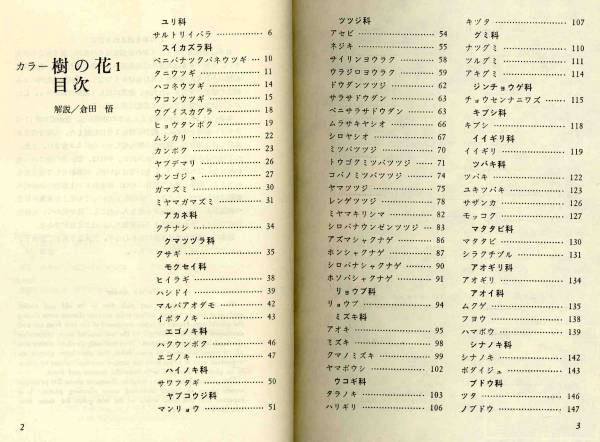 カラー樹の花1
目次
解説／倉田 悟
ユリ科
サルトリイバラ 6
スイカズラ科
ベニバナツクバネウツギ 10
タニウツギ 11
ハコネウツギ 14
ウコンウツギ 15
ウグイスカグラ 18
ヒョウタンボク 19
ムシカリ 22
カンボク 23
ヤブデマリ 26
サンゴジュ 27
ガマズミ 30
ミヤマガマズミ 31
アカネ科
クチナシ 34
クマツヅラ科
クサギ 35
モクセイ科
ヒイラギ 38
ハシドイ 39
マルバアオダモ 42
イボタノキ 43
エゴノキ科
ハクウンボク 46
エゴノキ 47
ハイノキ科
サワフタギ 50
ヤブコウジ科
マンリョウ 51
2
ツツジ科
アセビ 54
ネジキ 55
サイリンヨウラク 58
ウラジロヨウラク 59
ドウダンツツジ 62
サラサドウダン 63
ベニサラサドウダン 63
ムラサキヤシオ 66
シロヤシオ 67
ミツバツツジ 70
トウゴクミツバツツジ 71
コバノミツバツツジ 74
ヤマツツジ 75
レンゲツツジ 78
ミヤマキリシマ 82
シロバナウンゼンツツジ 83
アズマシャクナゲ 86
ホンシャクナゲ 87
シロバナシャクナゲ 90
ホソバシャクナゲ 91
リョウブ科
リョウブ 94
ミズキ科
アオキ 95
ミズキ 98
クマノミズキ 99
ヤマボウシ 102
ウコギ科
タラノキ 103
ハリギリ 106
キヅタ 107
グミ科
ナツグミ 110
ツルグミ 111
アキグミ 114
ジンチョウゲ科
チョウセンナニワズ 115
キブシ科
キブシ 118
イイギリ科
イイギリ 119
ツバキ科
ツバキ 122
ユキツバキ 123
サザンカ 126
モッコク 127
マタタビ科
マタタビ 130
シラクチヅル 131
アオギリ科
アオギリ 134
アオイ科
ムクゲ 135
フヨウ 138
ハマボウ 139
シナノキ科
シナノキ 142
ボダイジュ 143
ブドウ科
ツタ 146
ノブドウ 147
3